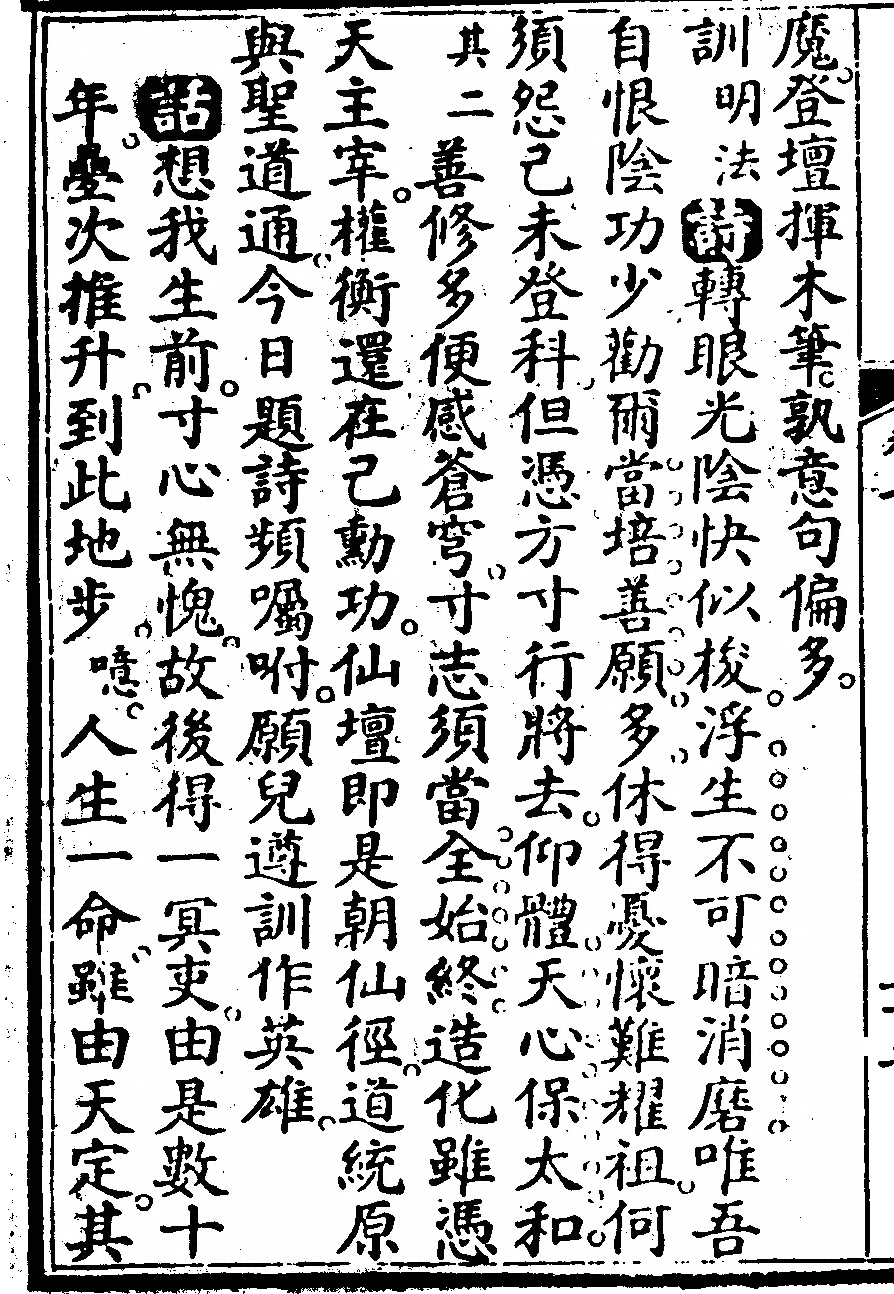 魔登壇揮木筆孰意句偏多
訓明法詩轉眼光陰快似梭浮生不可暗消磨唯吾
自恨陰功少勸爾當培善願多休得憂懷難耀祖何
須怨己未登科但憑方寸行將去仰體天心保太和
其二善修多便感蒼穹寸志須當全始終造化雖憑
天主宰權衡還在己勳功仙壇即是朝仙徑道統原
與聖道通今日題詩頻囑咐願兒遵訓作英雄
話想我生前寸心無愧故後得一冥吏由是數十
年疊次推升到此地步噫人生一命雖由天定其